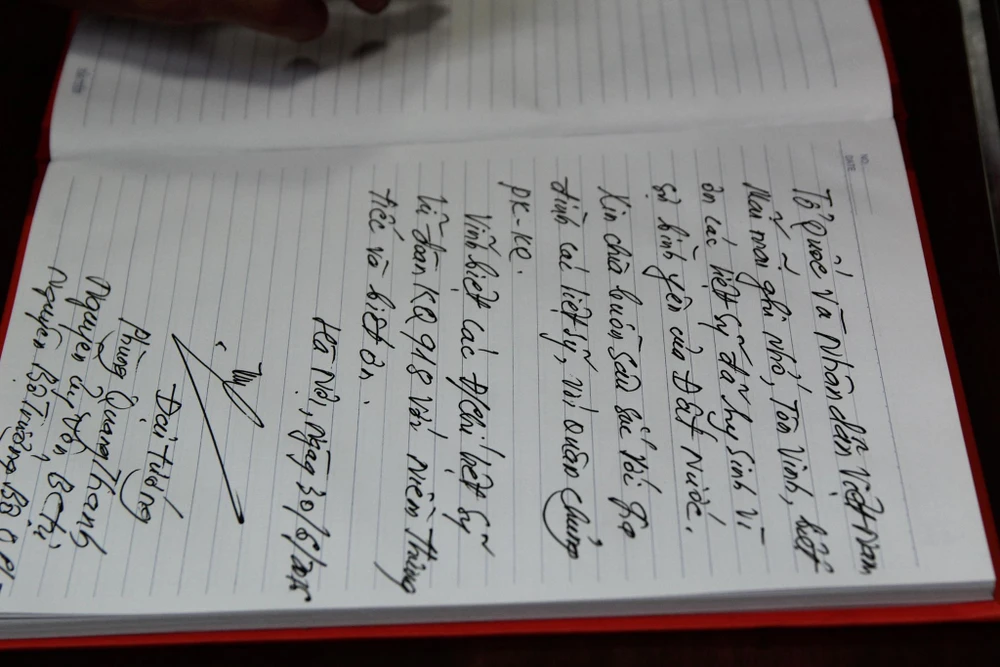 NO.
DATE
Tổ quốc và nhân dân Việt Nam
Mãi mãi ghi nhớ, Tôn Vinh, biết
ơn các liệt sỹ đã hy sinh vì
sự bình yên của Đất Nước.
Xin chia buồn sâu sắc tới gia
đình các liệt sỹ, với Quân chủng
PK-KQ.
Vĩnh biệt các đ/chí liệt sỹ
Lữ đoàn KQ 918 với niềm thương
tiếc và biết ơn.
Hà Nội, ngày 30/6/2016
Đại tướng
Phùng Quang Thanh
Nguyên Ủy viên BCT,
Nguyên Bộ Trưởng Bộ QP